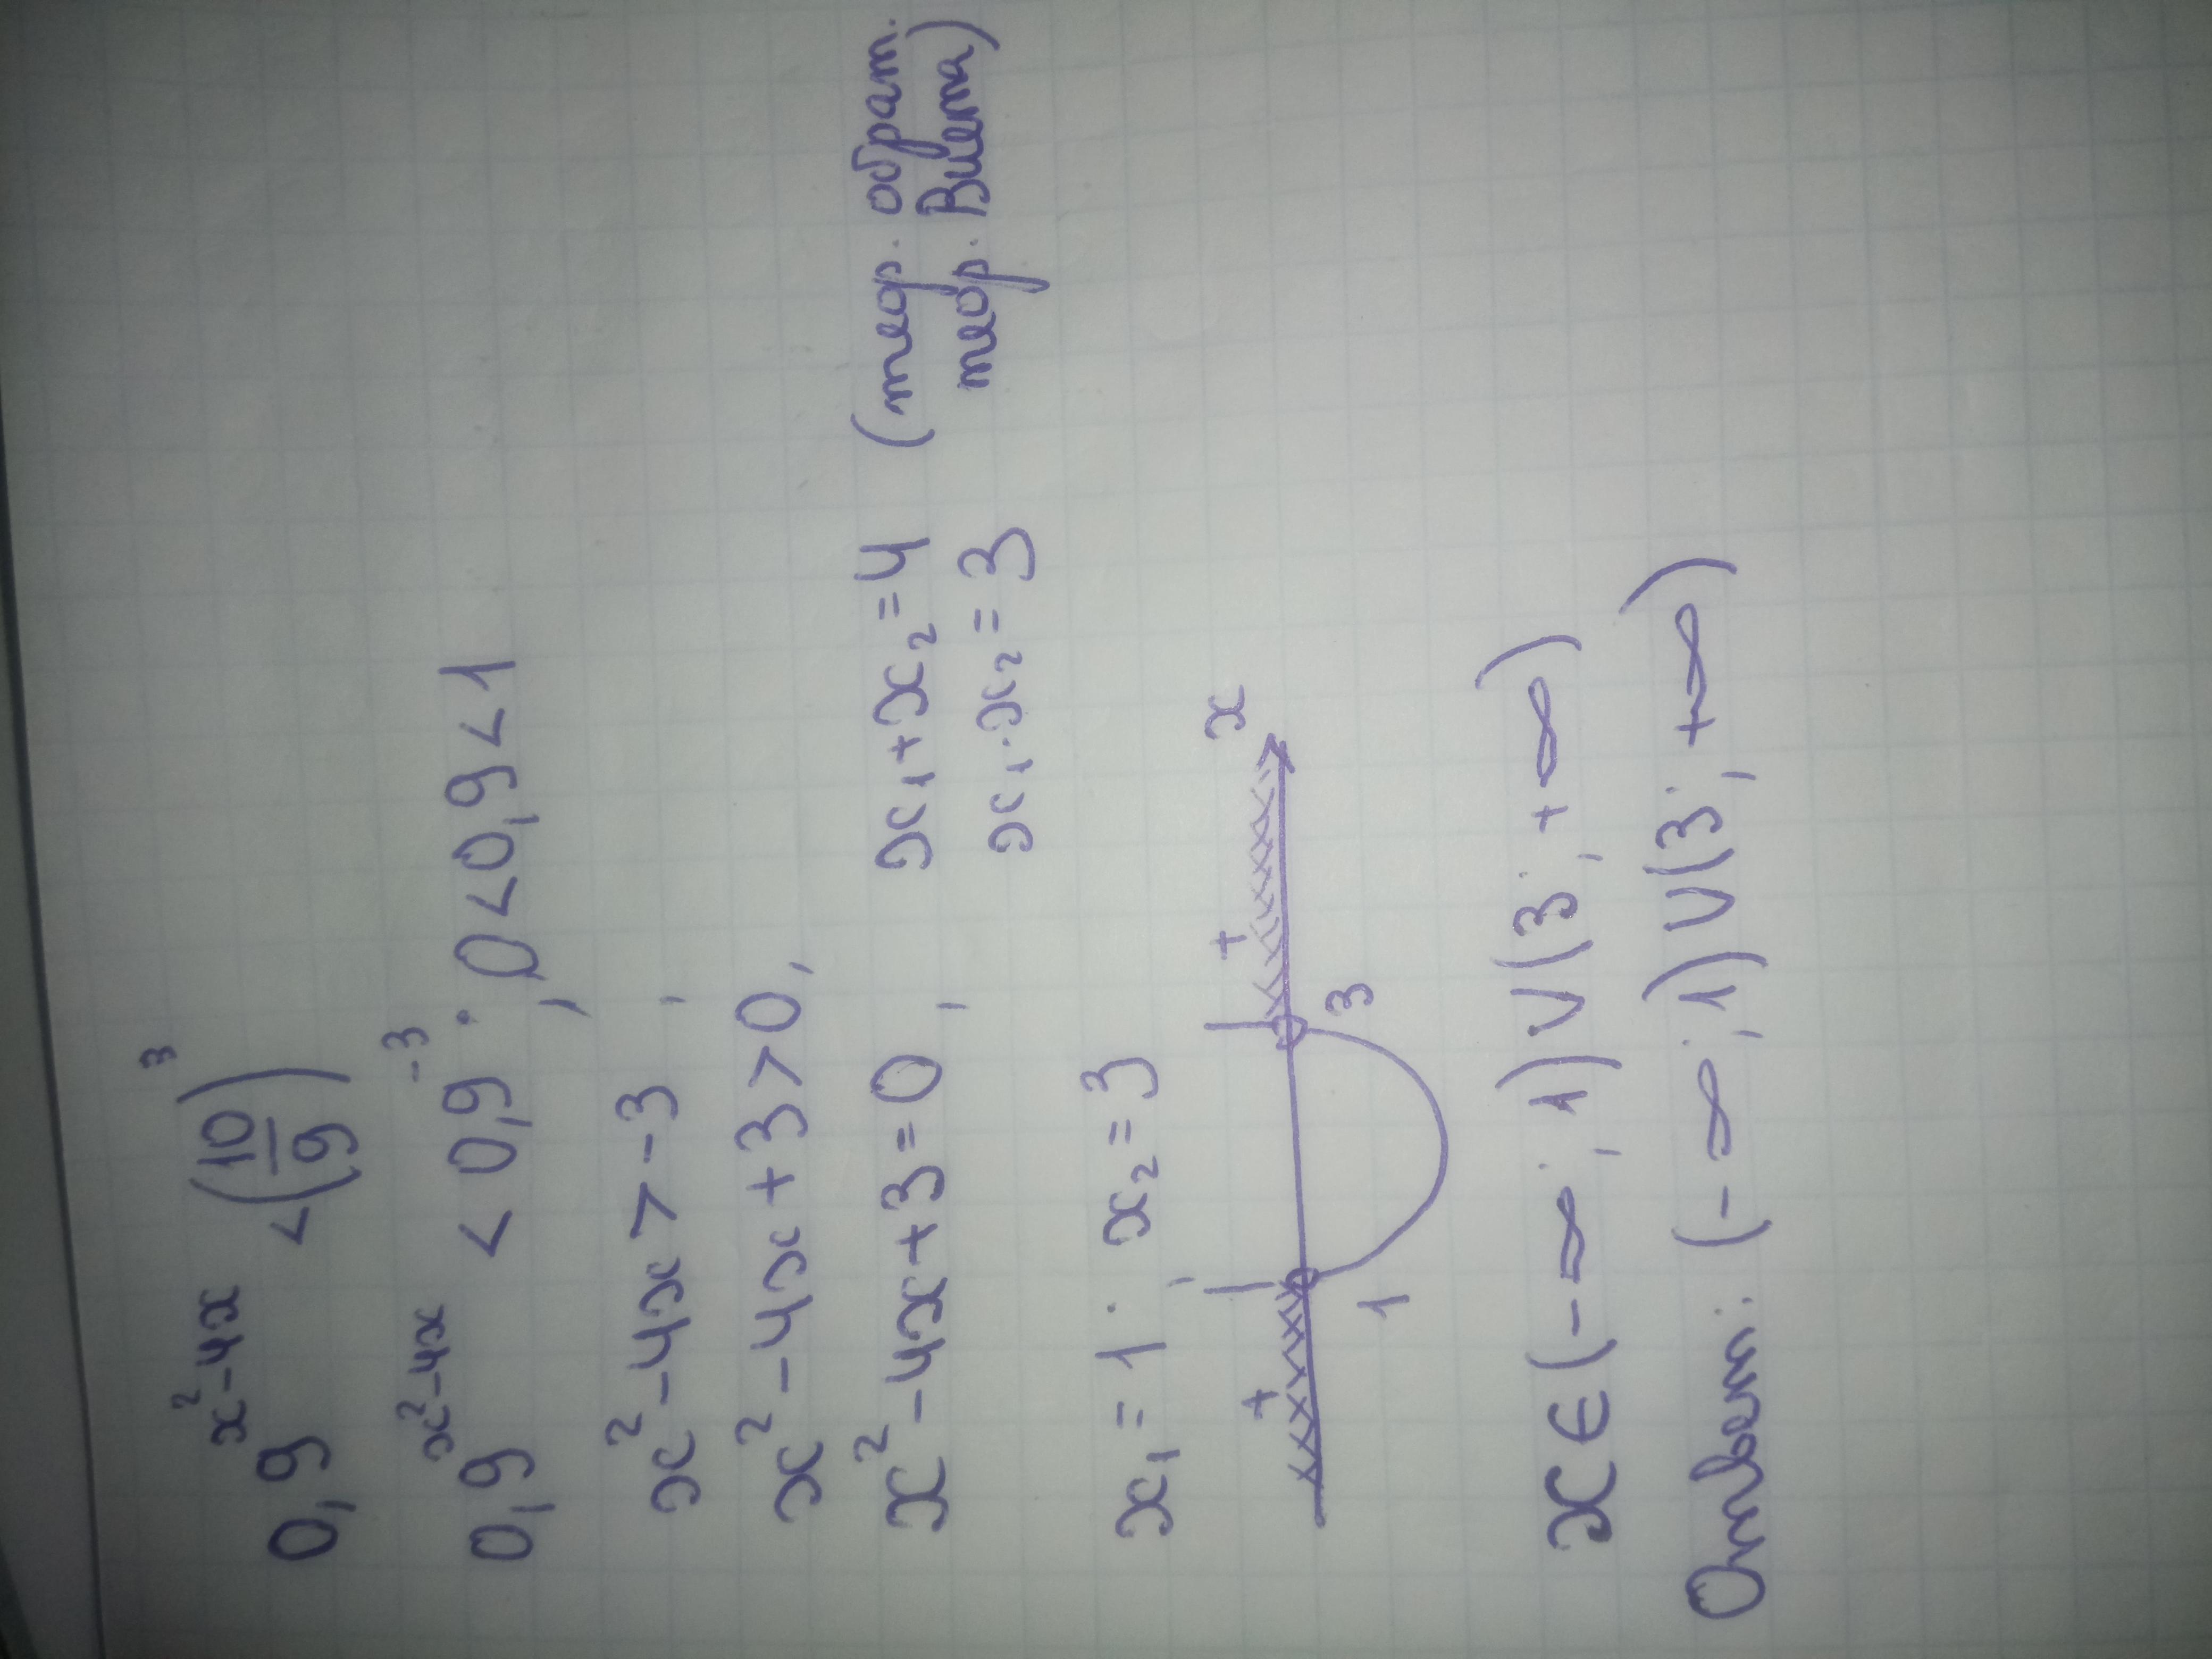 0,9^(x²-4x) < (10/9)³
0,9^(x²-4x) < 0,9^(-3); 0<0,9<1
x²-4x>-3,
x²-4x+3>0,
x²-4x+3=0, x₁+x₂=4 (теор. обрат.
x₁·x₂=3 теор. Виета)
x₁=1; x₂=3
+ + x
1 3
x∈(-∞;1)∪(3;+∞)
Ответ: (-∞;1)∪(3;+∞)